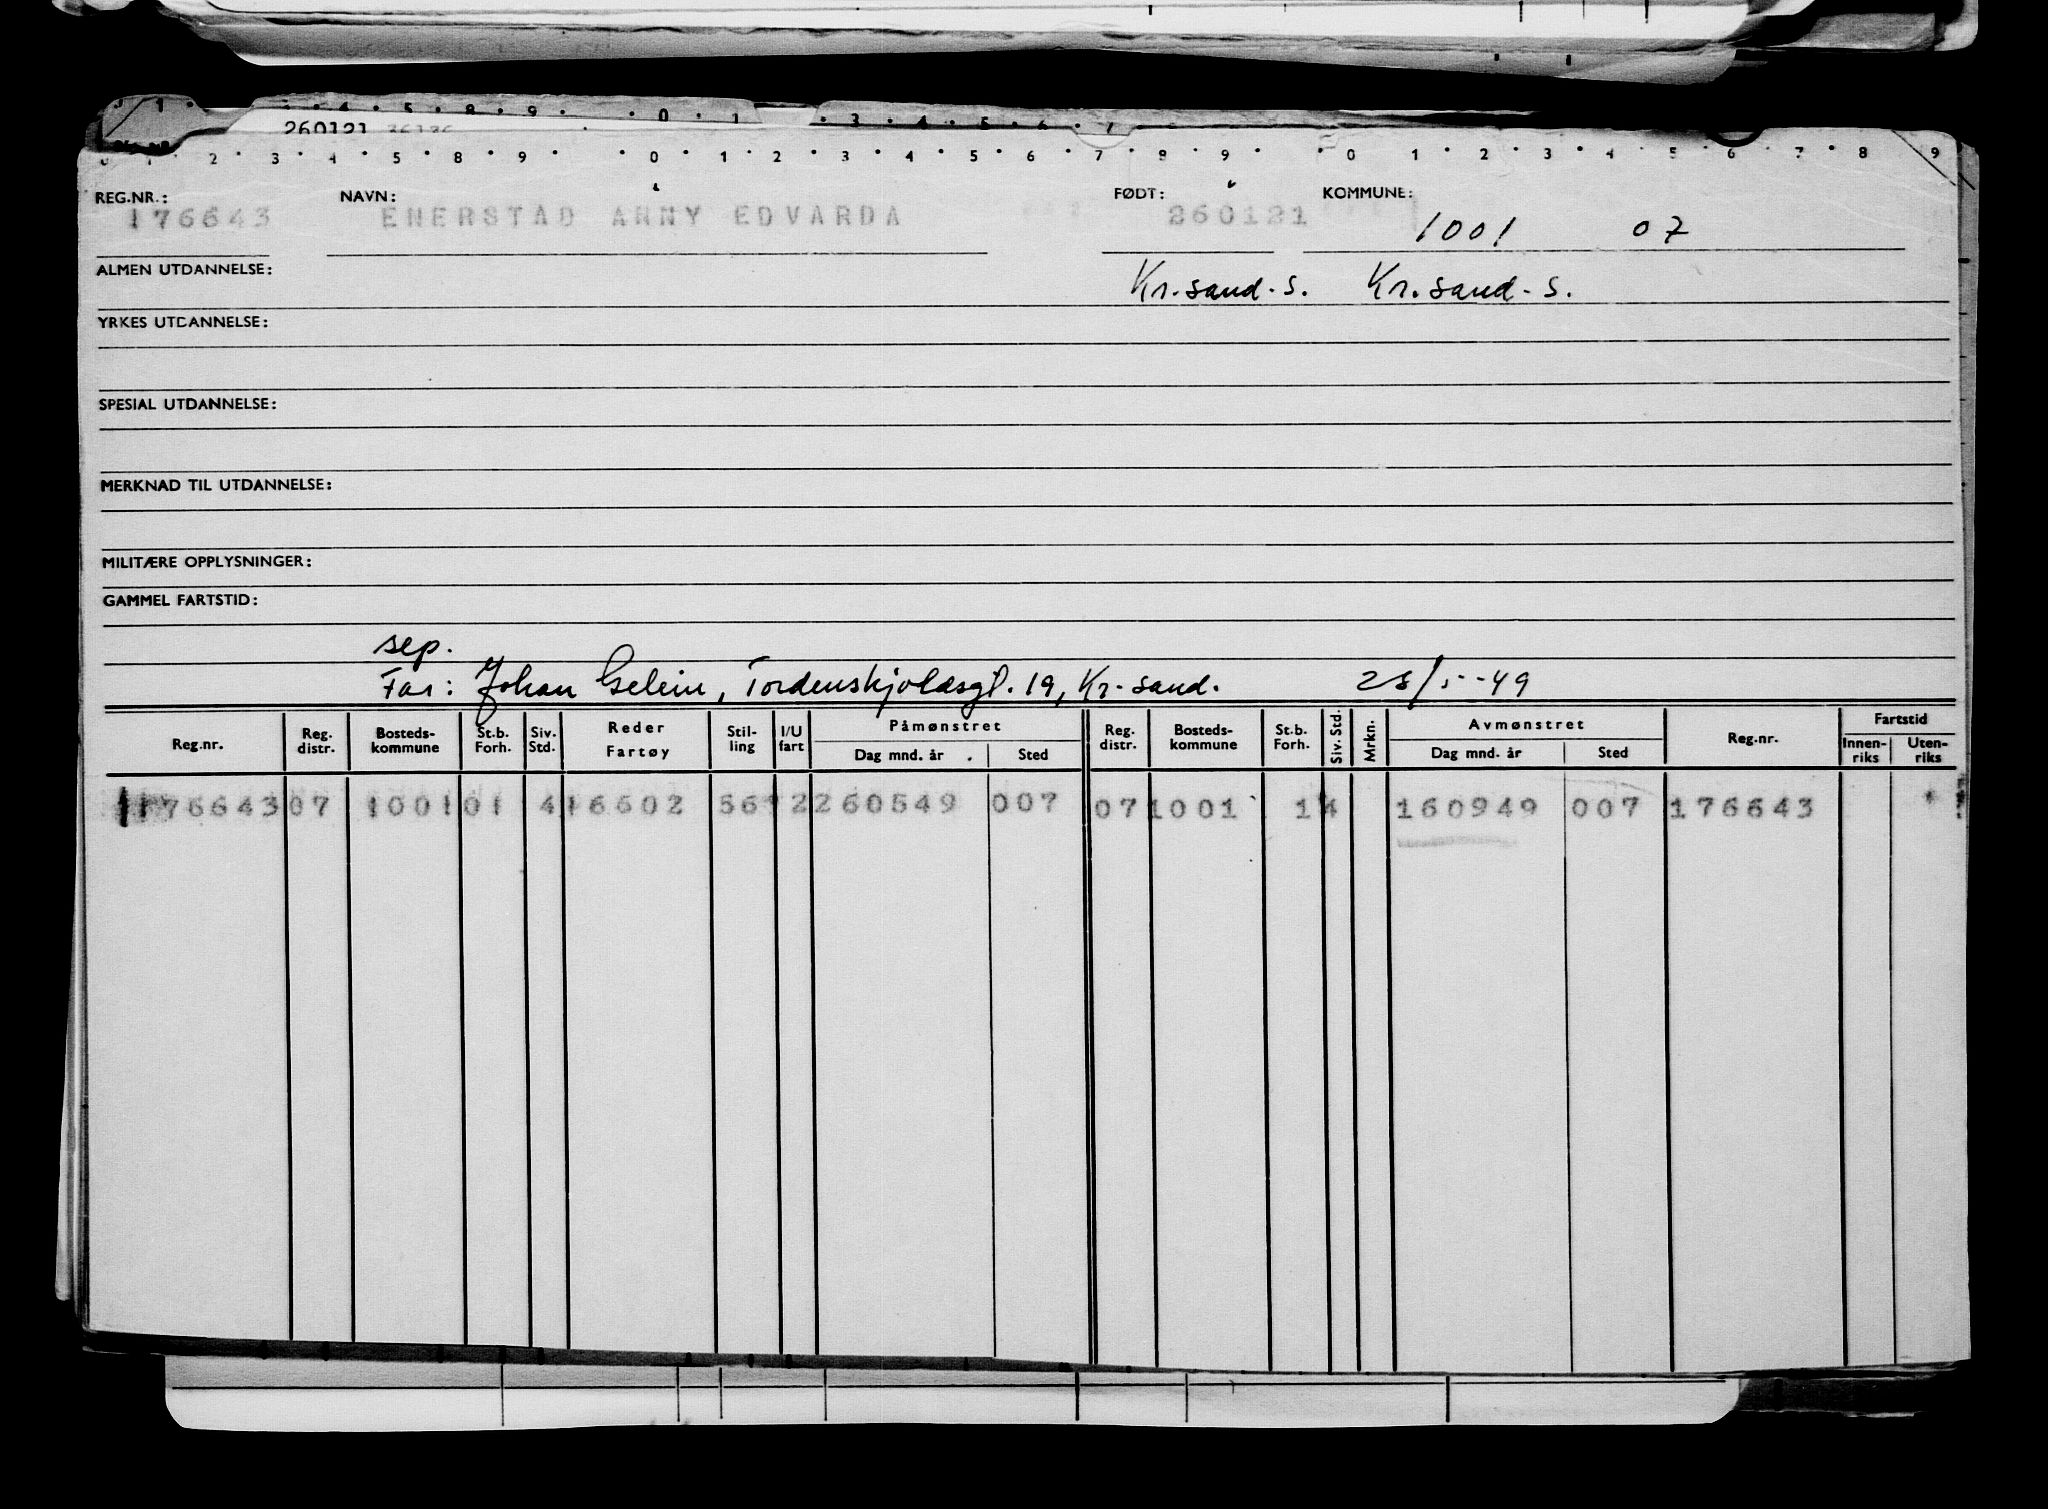 260121
REG.NR.: NAVN: FØDT: KOMMUNE:
176643 ENERSTAD ANNY EDVARDA 260121 1001 07
ALMEN UTDANNELSE: Kr.sand-S. Kr.sand-S.
YRKES UTDANNELSE:
SPESIAL UTDANNELSE:
MERKNAD TIL UTDANNELSE:
MILITÆRE OPPLYSNINGER:
GAMMEL FARTSTID:
sep.
Far: Johan Gelein, Tordenskjoldsgt. 19, Kr.sand. 28/5-49
Reg.nr. Reg. distr. Bosteds-kommune St.b. Forh. Siv. Std. Reder Fartøy Stil-ling I/U fart Påmønstret Dag mnd. år Sted Reg. distr. Bosteds-kommune St.b. Forh. Siv. Std. Mrkn. Avmønstret Dag mnd. år Sted Reg.nr. Fartstid Innen-riks Uten-riks
176643 07 1001 01 4 16602 561 2 260549 007 07 1001 1 4 160949 007 176643